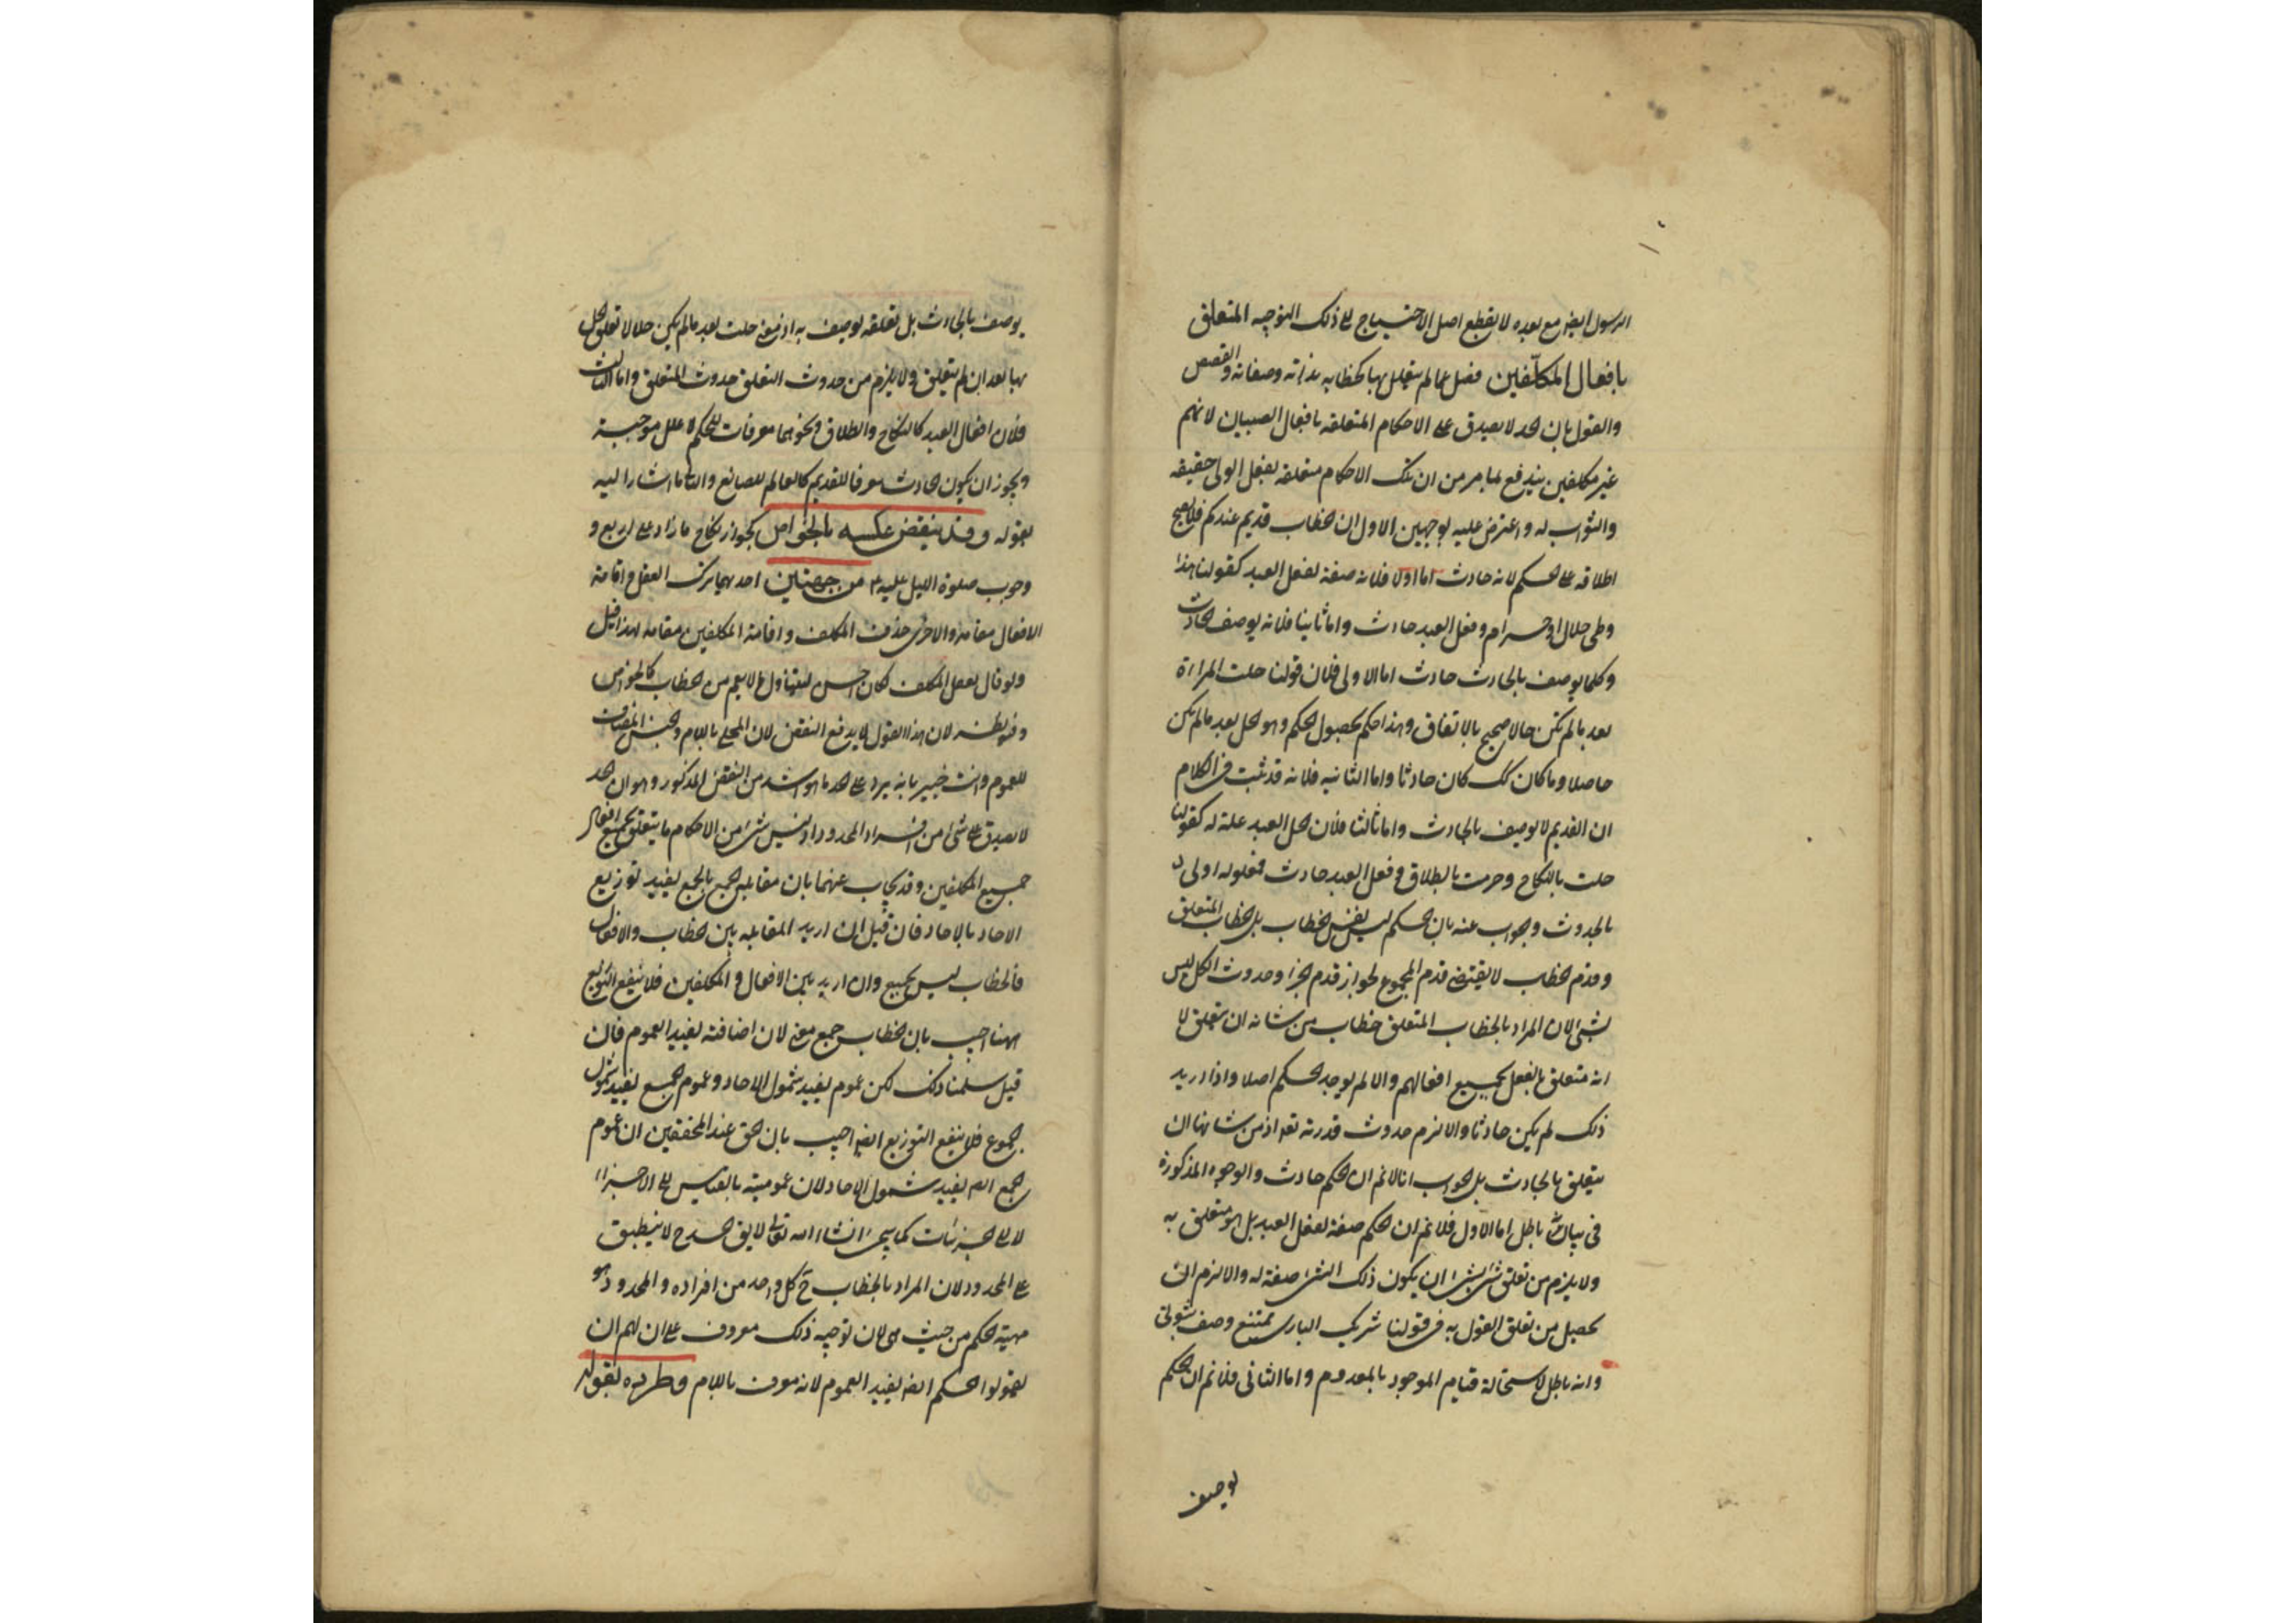 الرسول ايضا مع بعده لا يقطع اصل الاحتياج الى ذلك التوجيه المتعلق
بافعال المكلّفين فصل عما لم يتعلق بها كخطابه بذاته وصفاته والقصص
والقول بان الحد لا يصدق على الاحكام المتعلقه بافعال الصبيان لانهم
غير مكلفين يندفع بما مر من ان تلك الاحكام متعلقه بفعل الولى حقيقه
والثواب له واعترض عليه بوجهين الاول ان الخطاب قديم عندكم فلا يصح
اطلاقه على الحكم لانه حادث اما اولا فلانه صفة لفعل العبد كقولنا هذا
وطى حلال او حرام وفعل العبد حادث واما ثانيا فلانه يوصف بالحادث
وكلما يوصف بالحادث حادث اما الاولى فلان قولنا حلت المراة
بعد ما لم تكن حالا صحيح بالاتفاق وهذا حكم بحصول الحكم وهو الحل بعد ما لم يكن
حاصلا وما كان كك كان حادثا واما الثانيه فلانه قد ثبت فى الكلام
ان القديم لا يوصف بالحادث واما ثالثا فلان فعل العبد علة له كقولنا
حلت بالنكاح وحرمت بالطلاق وفعل العبد حادث فمعلوله اولى
بالحدوث وجواب عنه بان الحكم ليس نفس الخطاب بل الخطاب المتعلق
وقدم الخطاب لا يقتضى قدم المجموع لجواز قدم الجزء وحدوث الكل وليس
بشئ لان المراد بالخطاب المتعلق خطاب من شانه ان يتعلق لا
انه متعلق بالفعل بجميع افعالهم والا لم يوجد الحكم اصلا واذا اريد
ذلك لم يكن حادثا والا لزم حدوث قدرته تعه اذ من شانها ان
يتعلق بالحادث بل الجواب انا لا نم ان الحكم حادث والوجوه المذكورة
فى بيانه باطل اما الاول فلا نم ان الحكم صفة لفعل العبد بل هو متعلق به
ولا يلزم من تعلق شئ بشئ ان يكون ذلك الشئ صفة له والا لزم ان
يحصل من تعلق القول به فى قولنا شريك البارى ممتنع وصف ثبوتى
وانه باطل لاستحالة قيام الموجود بالمعدوم واما الثانى فلا نم ان الحكم
يوصف
يوصف بالحادث بل تعلقه يوصف به اذ معنى حلت بعد ما لم يكن حلالا تعلق الحل
بها بعد ان لم يتعلق ولا يلزم من حدوث التعلق حدوث المتعلق واما الثالث
فلان افعال العبد كالنكاح والطلاق ونحوهما معرفات للحكم لا علل موجبة
ويجوز ان يكون الحادث معرفا للقديم كالعالم للصانع والثانى ما اشار اليه
بقوله وقد ينقض عكسه بالخواص كجواز نكاح ما زاد على اربع و
وجوب صلوة الليل عليه ع من جهتين احدهما ترك الفعل واقامة
الافعال مقامه والاخرى حذف المكلف واقامة المكلفين مقامه لهذا قيل
ولو قال بفعل المكلف لكان احسن ليتناول ما لا يعم من الخطاب كالخواص
وفيه نظر لان هذا القول لا يدفع النقض لان المحلى باللام والجنس المضاف
للعموم وانت خبير بانه يرد على الحد ما هو اشد من النقض المذكور وهو ان الحد
لا يصدق على شئ من افراد المحدود اذ ليس شئ من الاحكام ما يتعلق بجميع افعال
جميع المكلفين وقد يجاب عنهما بان مقابلة الجمع بالجمع يفيد توزيع
الاحاد بالاحاد فان قيل ان اريد المقابله بين الخطاب والافعال
فالخطاب ليس بجميع وان اريد بين الافعال والمكلفين فلا ينفع التوزيع
ههنا اجيب بان الخطاب جمع معنى لان اضافته يفيد العموم فان
قيل سلمنا ذلك لكن عموم يفيد شمول الاحاد وعموم الجمع يفيد شمول
الجموع فلا ينفع التوزيع ايضا اجيب بان الحق عند المحققين ان عموم
الجمع ايضا يفيد شمول الاحاد لان عموميته بالقياس الى الاجزاء
لا الى الجزئيات كما سيجئ انشاء الله تعالى لا يق الحد ح لا ينطبق
على المحدود لان المراد بالخطاب ح كل واحد من افراده والمحدود هو
مهية الحكم من حيث هى لان توجيه ذلك معروف على ان لهم ان
يقولوا الحكم ايضا يفيد العموم لانه معرف باللام وطرده بقوله